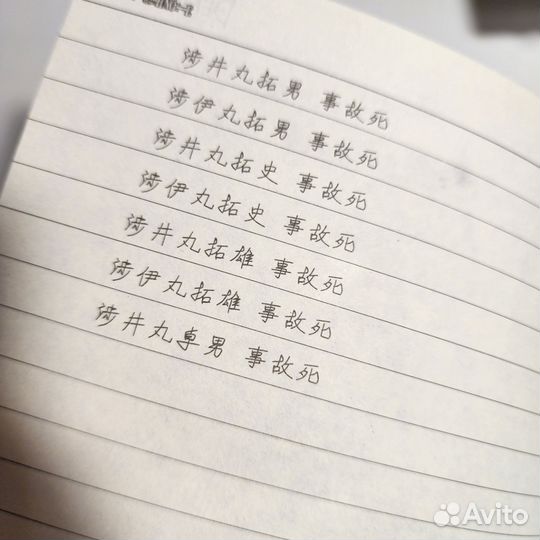 渉井丸拓男 事故死
渉伊丸拓男 事故死
渉井丸拓史 事故死
渉伊丸拓史 事故死
渉井丸拓雄 事故死
渉伊丸拓雄 事故死
渉井丸卓男 事故死
Avito